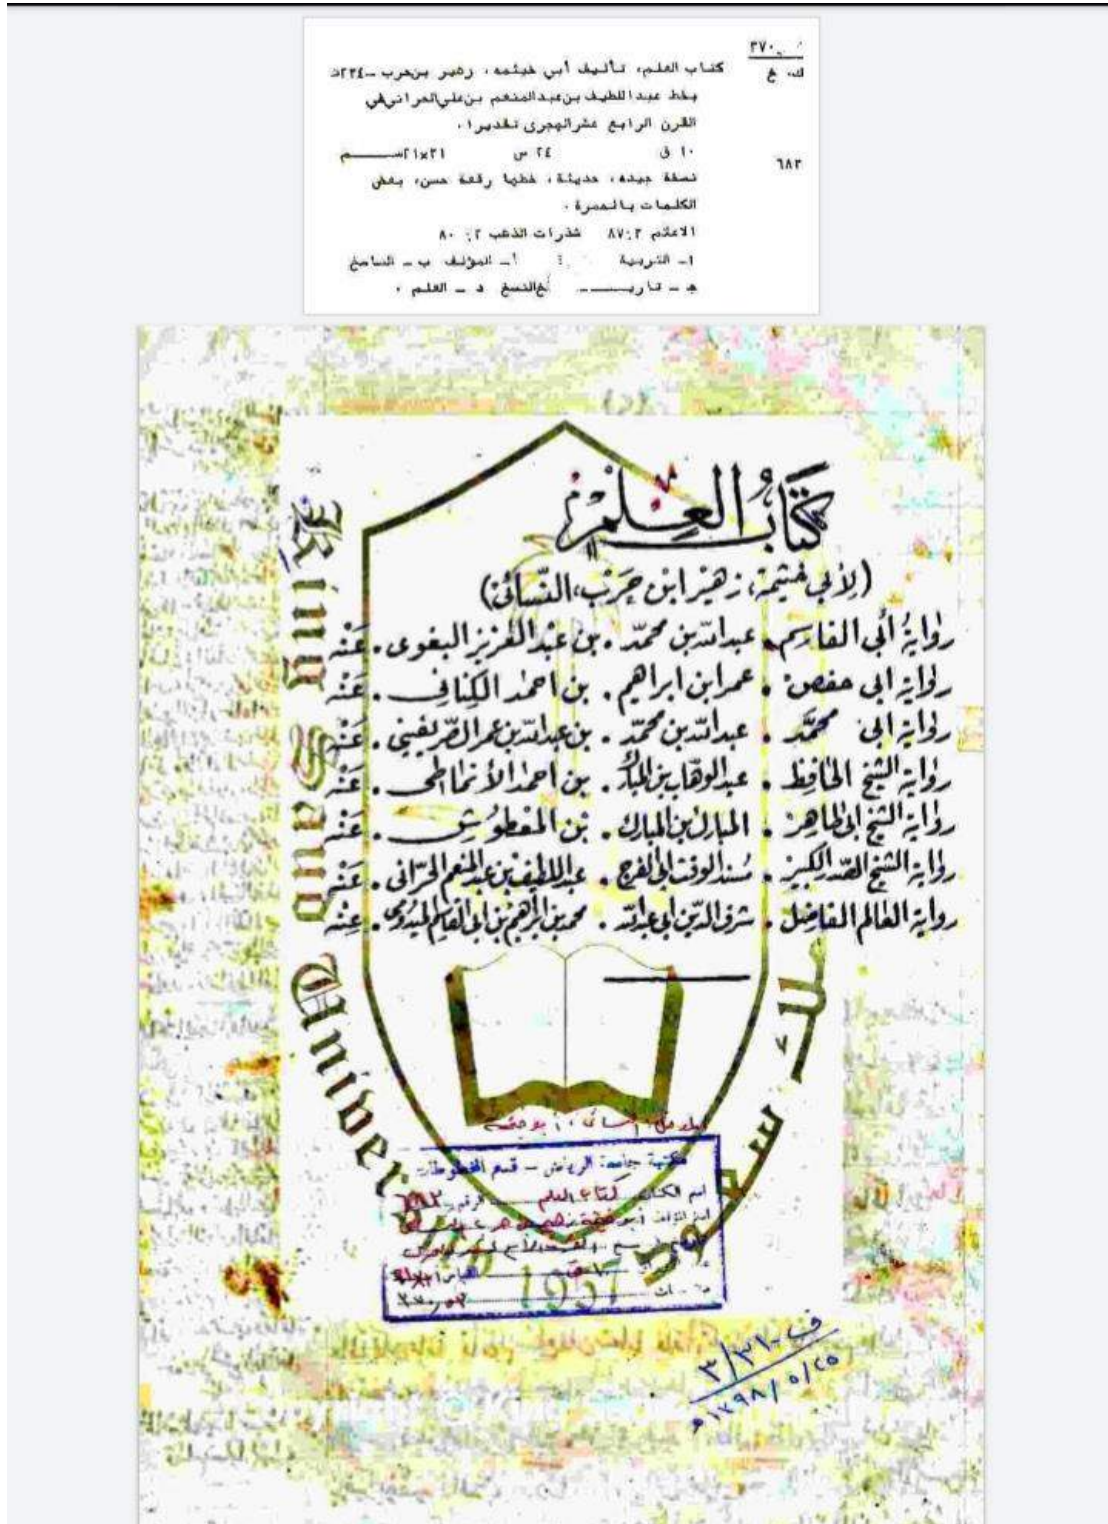 ٣٧٠
ك. خ
كتاب العلم، تأليف أبي خيثمه، زهير بن حرب -٢٣٤ه
بخط عبداللطيف بن عبدالمنعم بن علي الحراني في
القرن الرابع عشر الهجري تقديرا.
٦٨٢
١٠ ق ٢٤ س ٢١×٣١ســـم
نسخة جيده، حديثة، خطها رقعة حسن، بعض
الكلمات بالحمرة.
الاعلام ٨٧:٢ شذرات الذهب ٢: ٨٠
١- التربية أ- المؤلف ب - الناسخ
جـ - تاريـــــخ النسخ د - العلم.
كِتَابُ العِلْمِ
(لأبي خيثمة، زهير ابن حَرْب، النّسائي)
روايةُ أبي القاسم. عبد الله بن محمّد. بن عبْد العزيز البغوى. عَنْه
رواية ابي حفص. عمر ابن ابراهيم. بن احمد الكِناني. عَنْه
رواية ابي محمَّد. عبد الله بن محمّد. بن عبد الله بن عمر الصَّريفيني. عَنْه
رواية الشيخ الحافِظ. عبد الوهاب بن المبارك. بن احمد الأنماطي. عَنْه
رواية الشيخ ابي الطاهِر. المبارك بن المبارك. بن المعطوُش. عَنْه
رواية الشيخ الصّدر الكبير. مُسند الوقت ابي الفرج. عبد اللطيف بن عبد المنعم الحرّانى. عَنْه
رواية العالم الفاضِل. شرف الدّين ابي عبد الله. محمد بن ابراهيم بن ابي القاسم الميدُومى. عنْه
King Saud University
ملك سعود
1957
مكتبة جامعة الرياض - قسم المخطوطات
اسم الكتاب كتاب العلم الرقم ٦٨٢
اسم المؤلف ابو خيثمة زهير بن حرب
ف ٣/٣١٠
١٣٩٨/٥/٢٥هـ